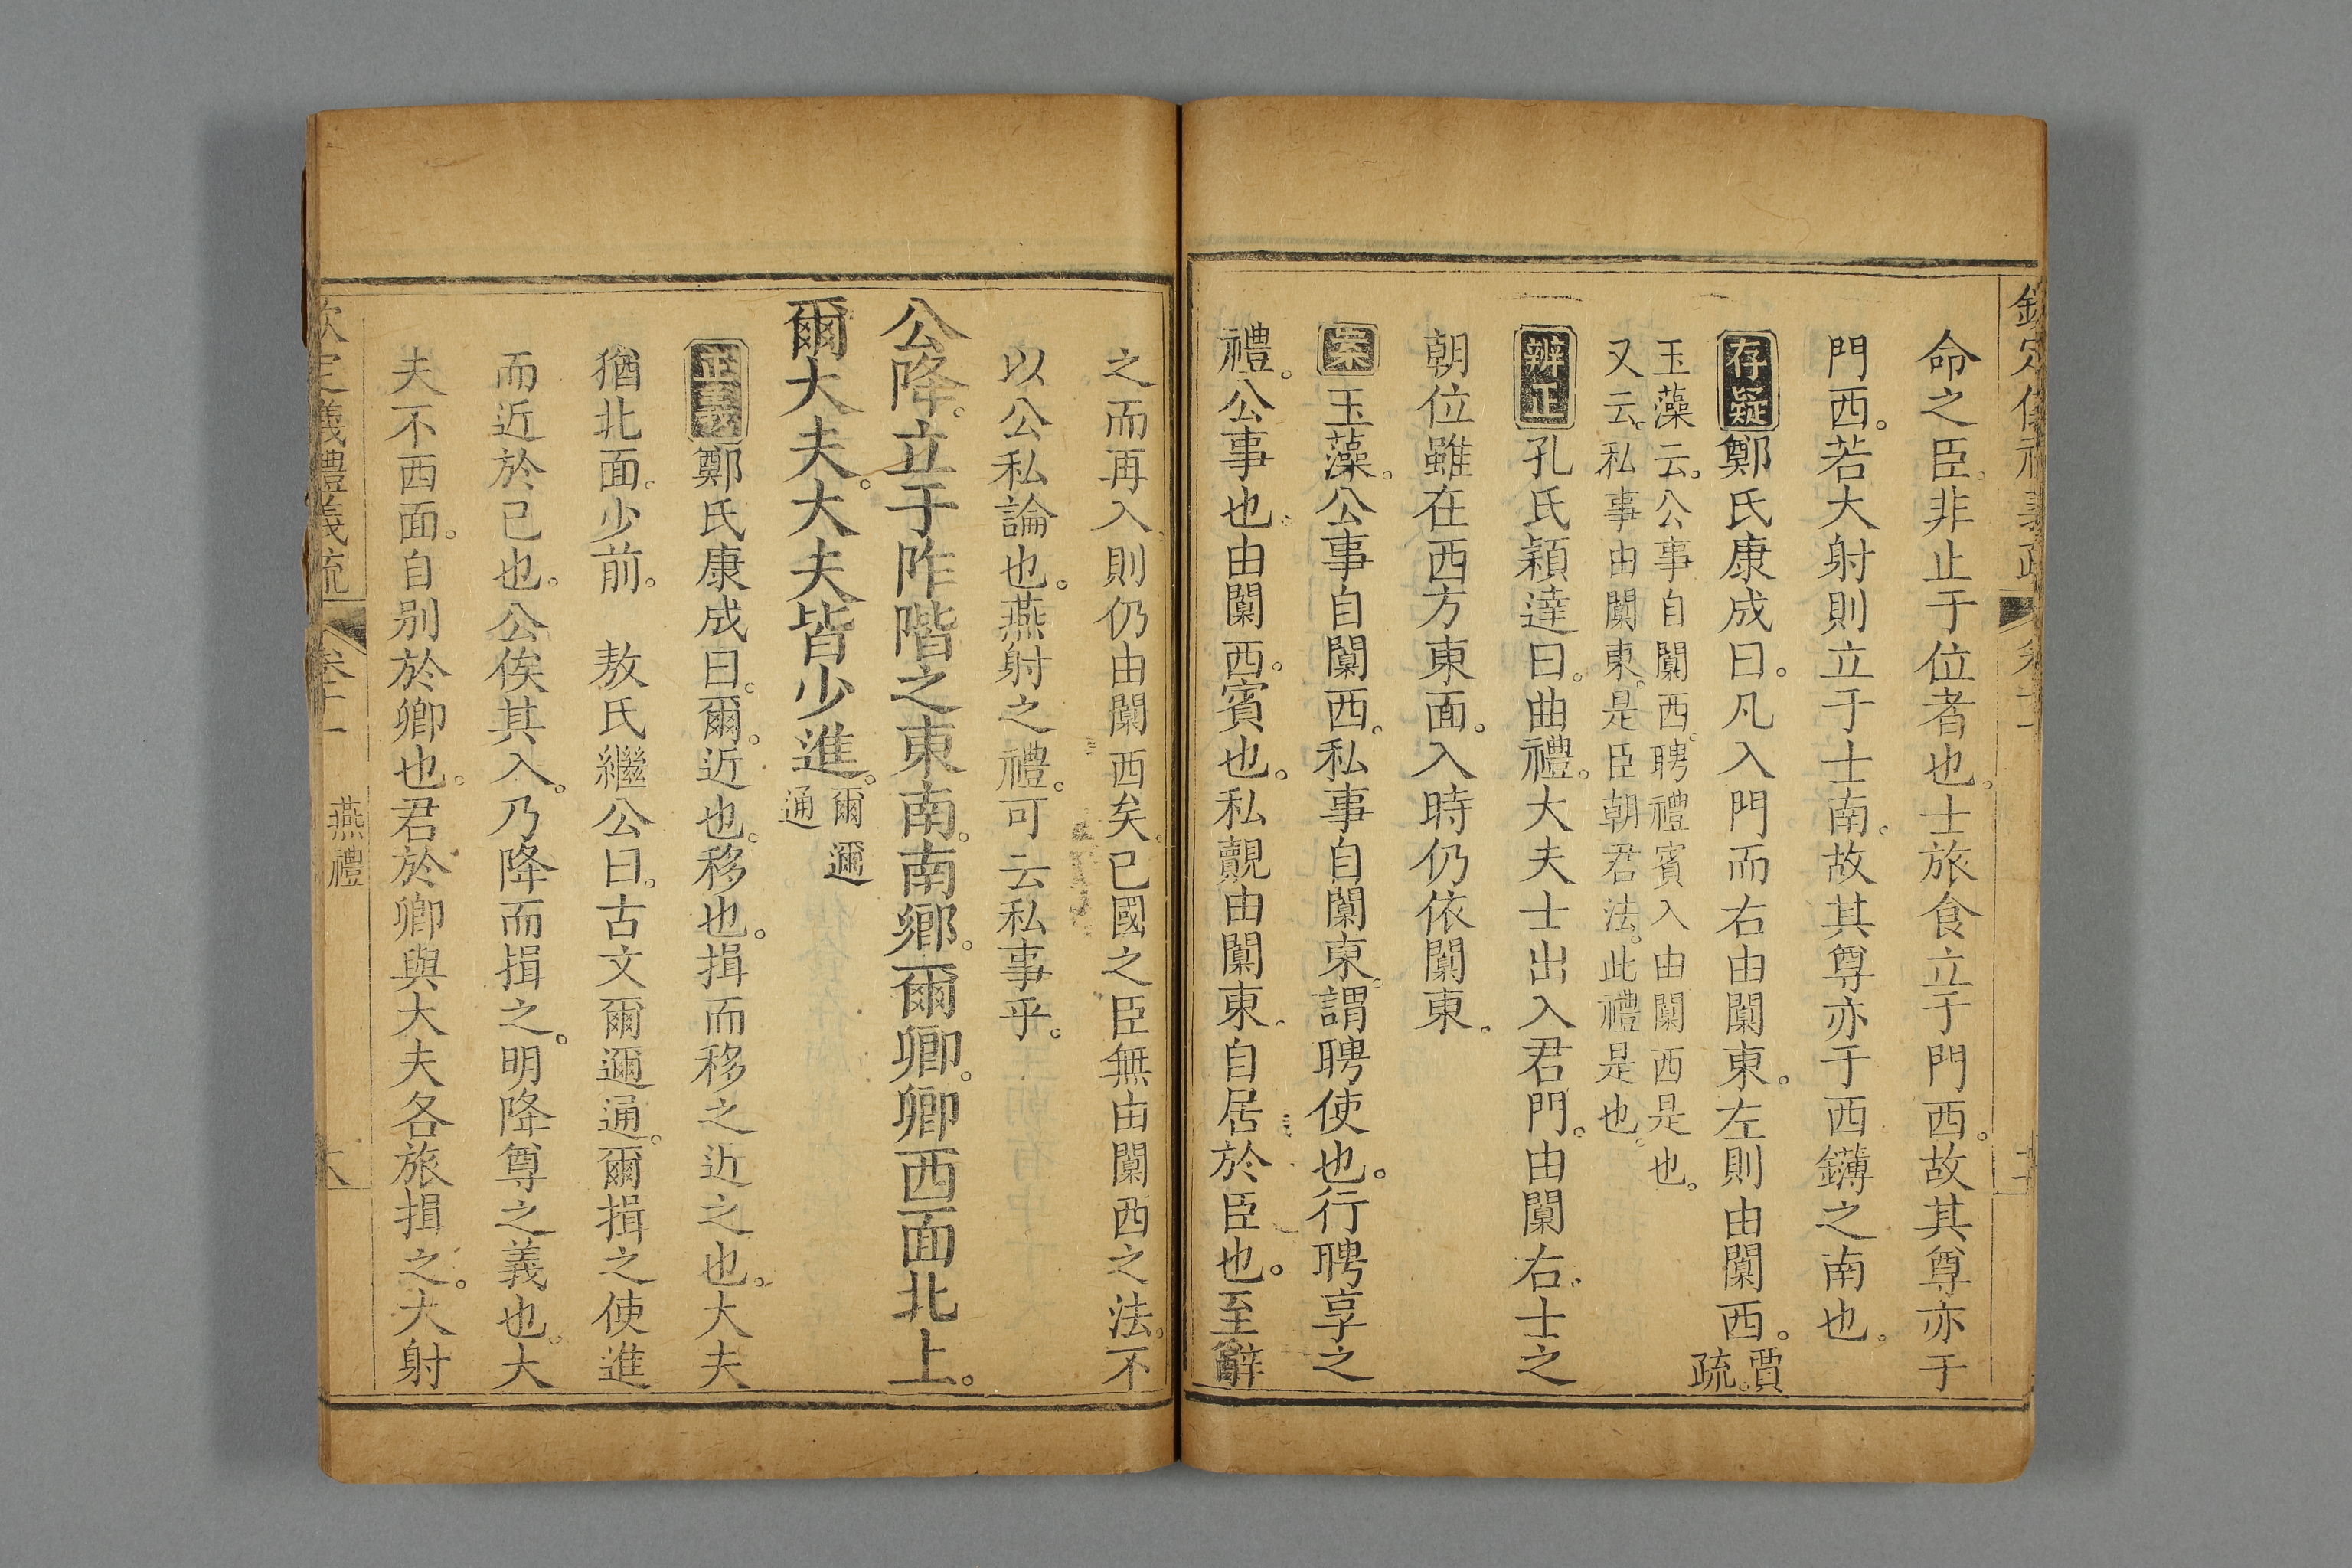 命之臣非止于位者也。士旅食立于門西。故其尊亦于
門西。若大射則立于士南。故其尊亦于西鑮之南也。
存疑鄭氏康成曰。凡入門而右由闑東。左則由闑西。賈疏。
玉藻云。公事自闑西。聘禮賓入由闑西是也。
又云。私事由闑東。是臣朝君法。此禮是也。
辨正孔氏穎達曰。曲禮。大夫士出入君門。由闑右。士之
朝位雖在西方東面。入時仍依闑東。
案玉藻。公事自闑西。私事自闑東。謂聘使也。行聘享之
禮。公事也。由闑西。賓也。私覿由闑東。自居於臣也。至辭
之而再入。則仍由闑西矣。已國之臣無由闑西之法。不
以公私論也。燕射之禮。可云私事乎。
公降。立于阼階之東南。南鄉。爾卿。卿西面北上。
爾大夫。大夫皆少進。爾邇
通
正義鄭氏康成曰。爾。近也。移也。揖而移之近之也。大夫
猶北面。少前。 敖氏繼公曰。古文爾邇通。爾揖之使進
而近於已也。公俟其入。乃降而揖之。明降尊之義也。大
夫不西面。自别於卿也。君於卿與大夫各旅揖之。大射
欽定義禮義疏 卷十一 燕禮